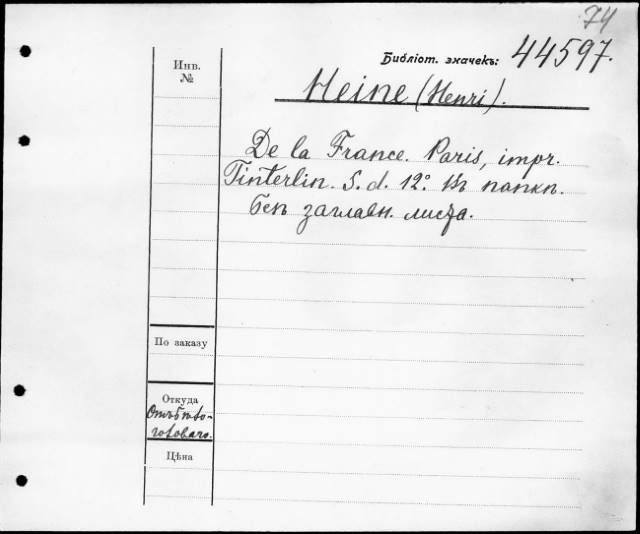 74
Библіот. значекъ: 44597.
Инв.
№
Heine (Henri).
De la France. Paris, impr.
Tinterlin. S. d. 12°. Въ папкѣ.
Без заглавн. листа.
По заказу
Откуда
Цѣна